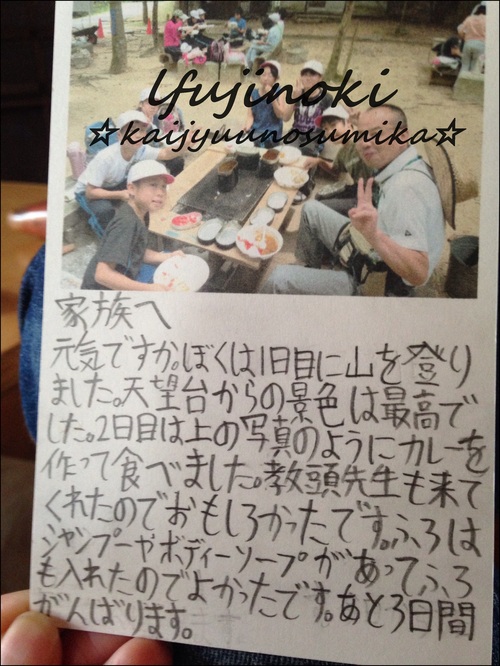 lfujinoki
☆kaijyuunosumika☆
家族へ
元気ですか。ぼくは1日目に山を登り
ました。天望台からの景色は最高で
した。2日目は上の写真のようにカレーを
作って食べました。教頭先生も来て
くれたのでおもしろかったです。ふろは
シャンプーやボディーソープがあってふろ
も入れたのでよかったです。あと3日間
がんばります。